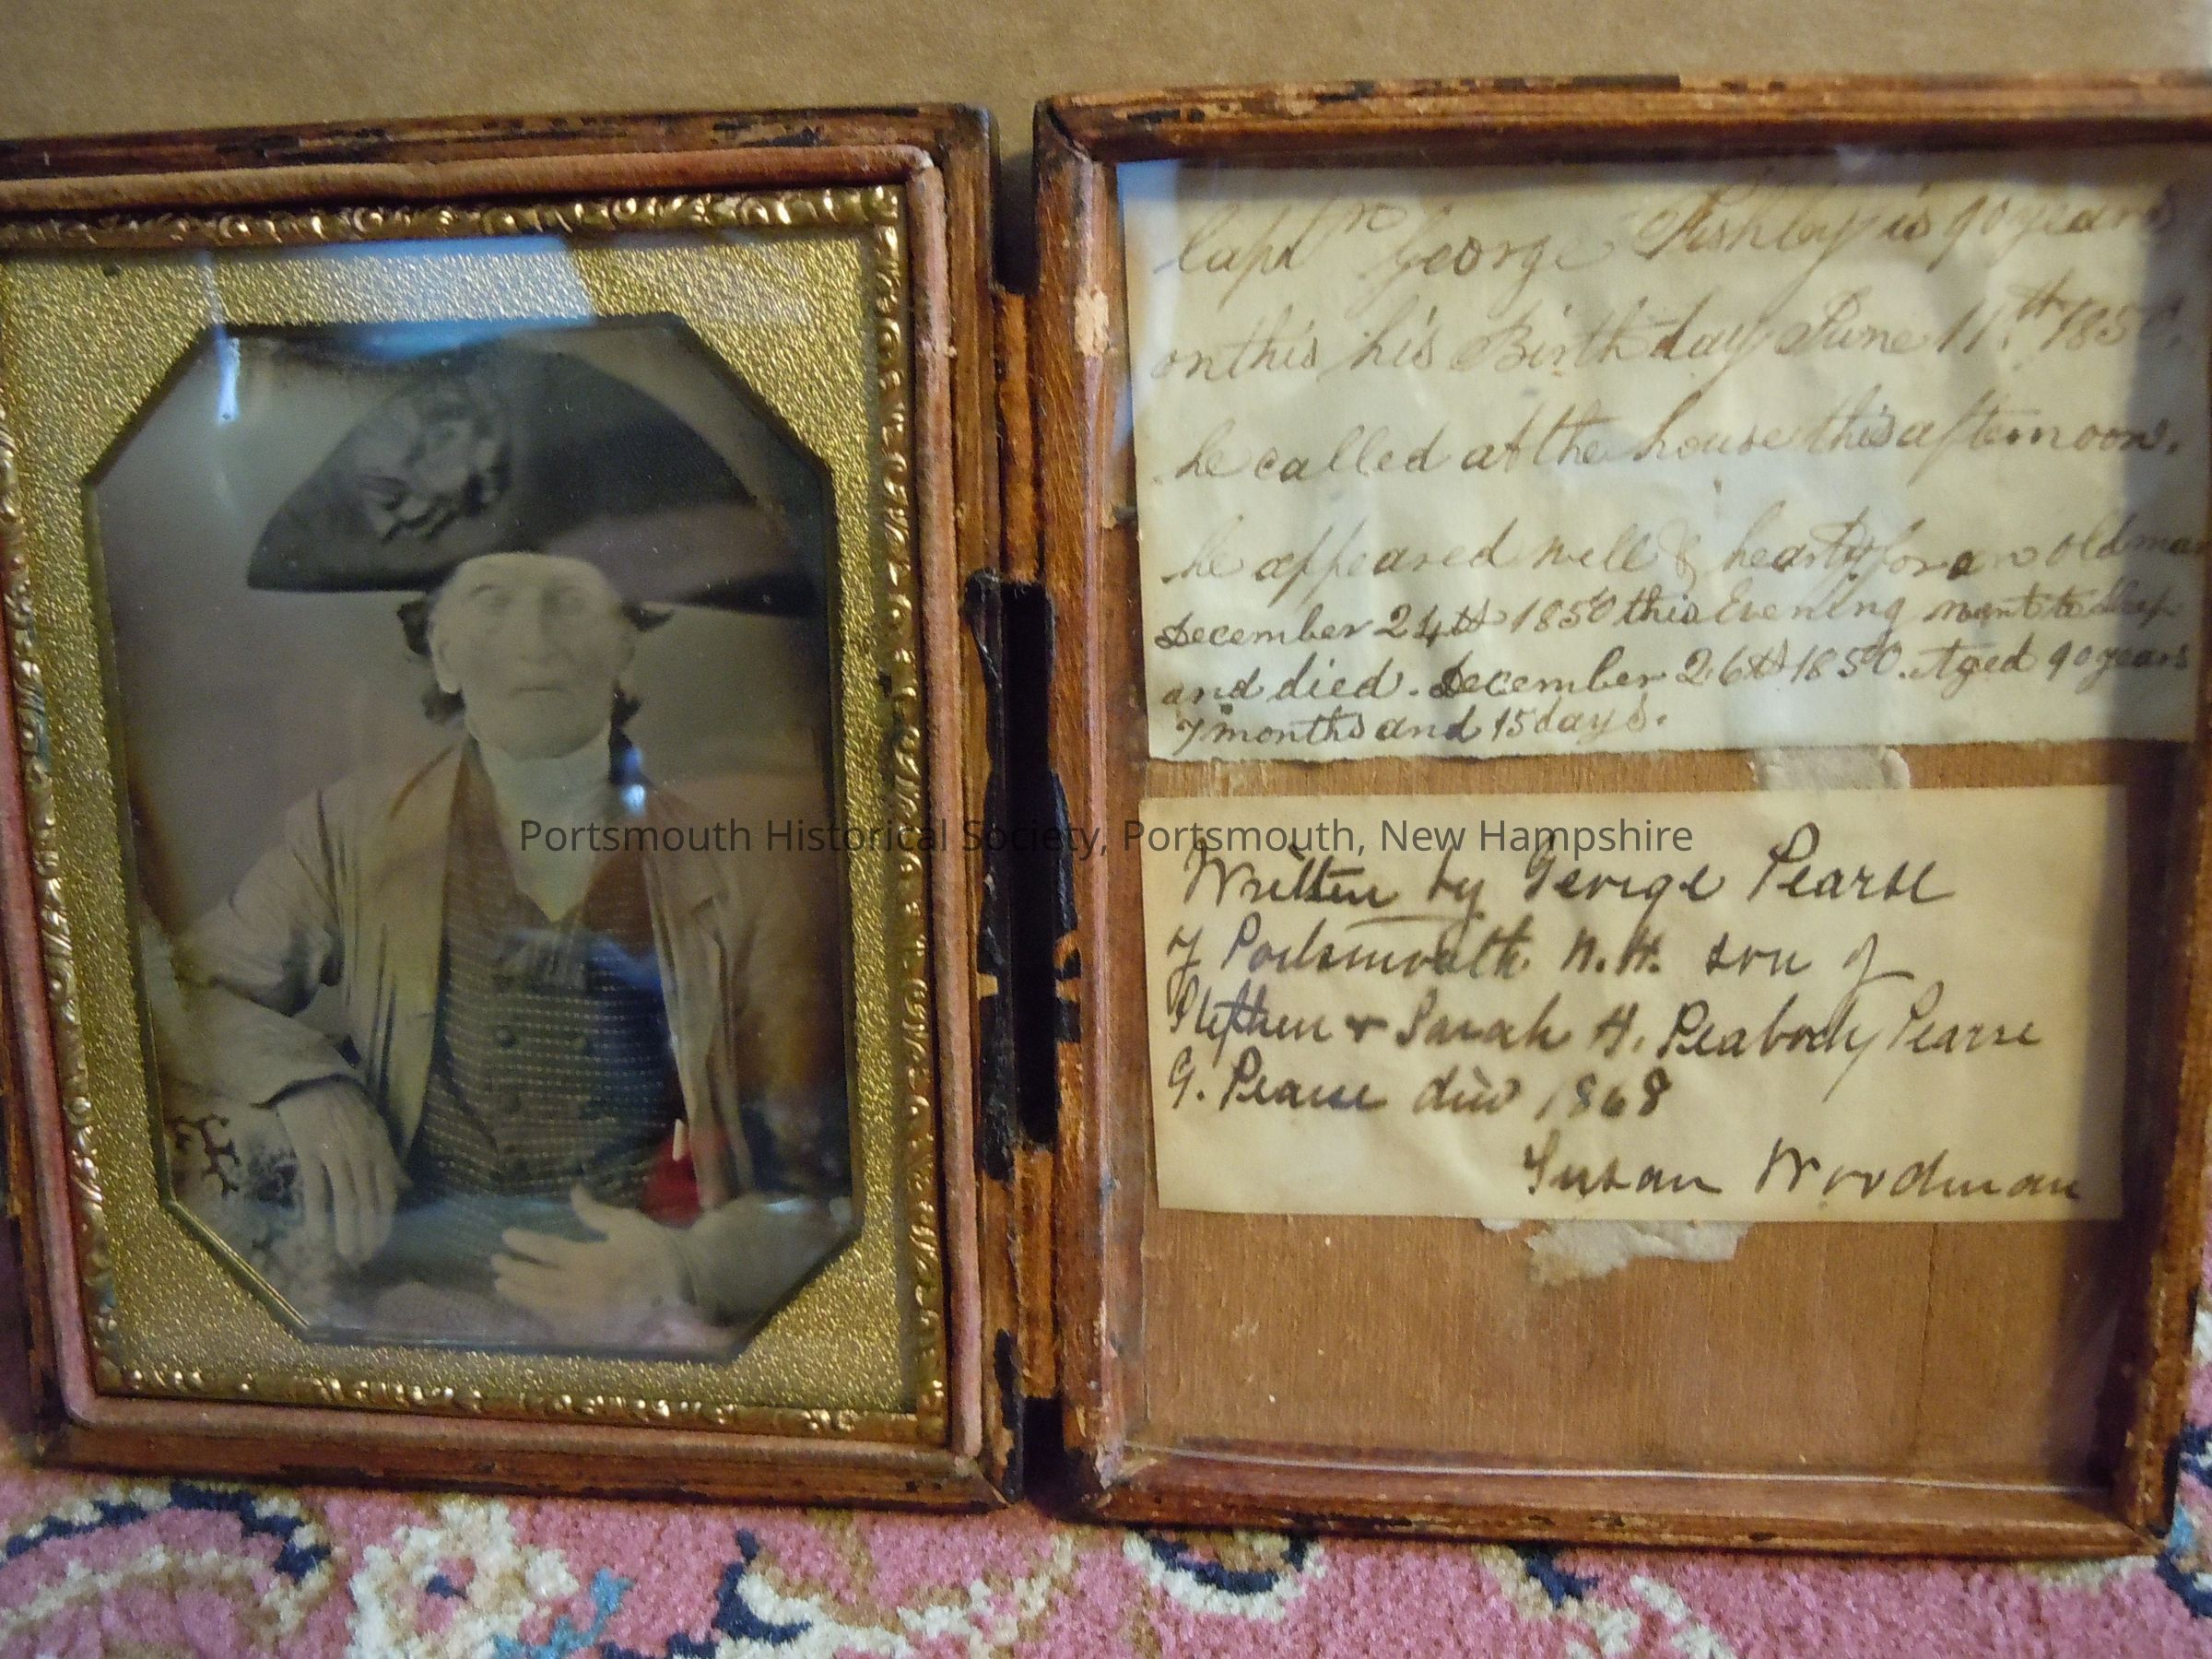 Captn George Fishley is 90 years
on this his Birthday June 11.th 1850.
he called at the house this afternoon.
he appeared well & hearty for an old man
December 24th 1850 this Evening went to Sleep
and died. December 26th 1850. Aged 90 years
7 months and 15 days.
Portsmouth Historical Society, Portsmouth, New Hampshire
Written by George Pearse
of Portsmouth N.H. son of
Stephen & Sarah H. Peabody Pearse
G. Pearse died 1868
Susan Woodman